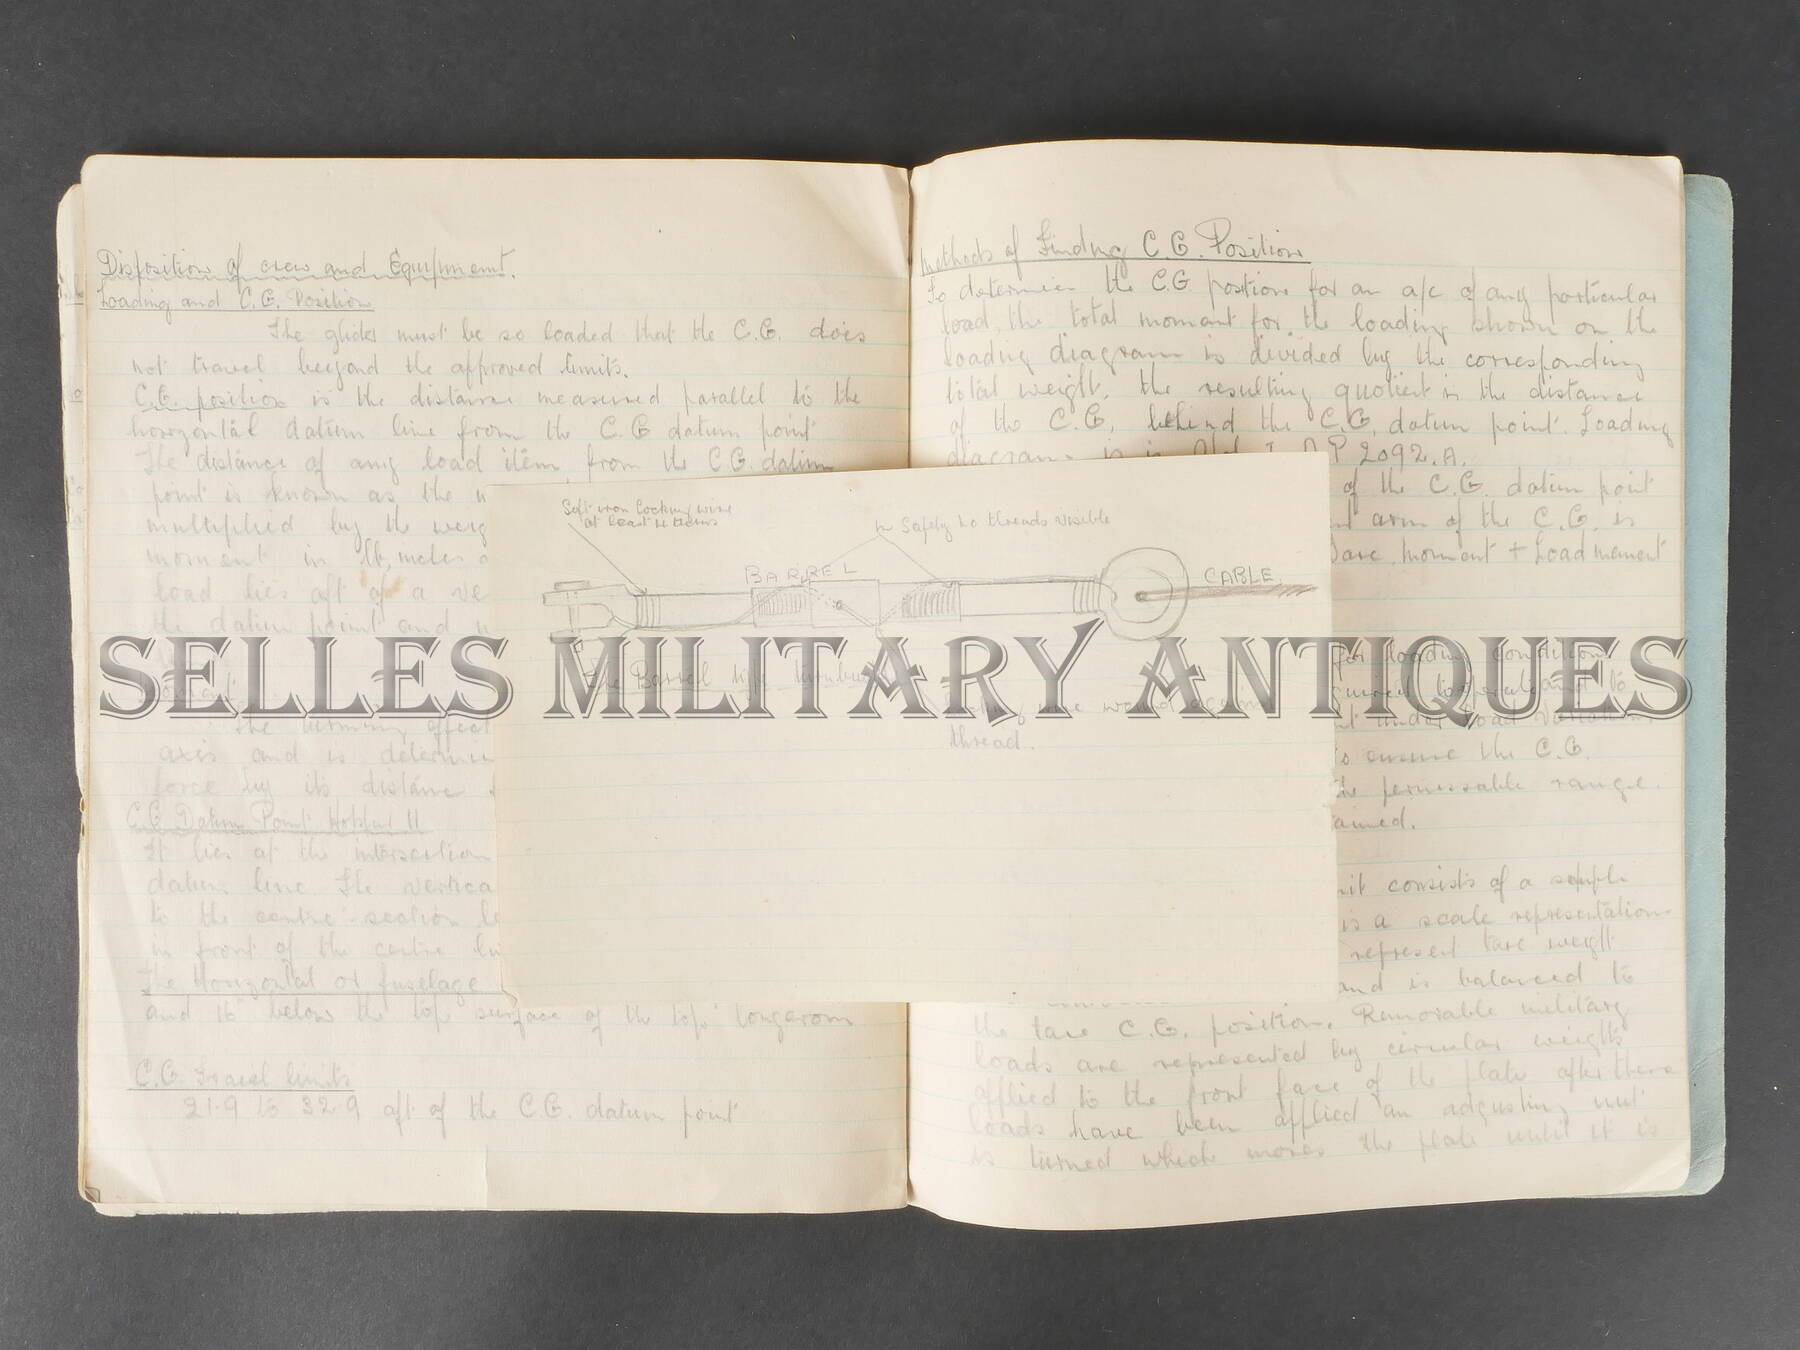 Disposition of crew and Equipment.
Loading and C.G. Position
The glider must be so loaded that the C.G. does
not travel beyond the approved limits.
C.G. position is the distance measured parallel to the
horizontal datum line from the C.G datum point
The distance of any load item from the C.G. datum
point is known as the
multiplied by the
moment in lb, meles
load lies aft of a
the datum point and
The turning effect
axis and is
force by its distance
C.G Datum Point Hotspur II
It lies at the intersection
datum line. The
to the centre-section
in front of the centre
The Horizontal or fuselage
and 16" below the top surface of the top longeron
C.G. Travel limits
21.9 to 32.9 aft of the C.G. datum point
Methods of Finding C.G. Position
To determin the C.G postion for an a/c of any particular
load, the total moment for the loading shown on the
loading diagram is divided by the corresponding
total weight. the resulting quotient is the distance
of the C.G. behind the C.G. datum point. Loading
A.P 2092.A.
of the C.G. datum point
arm of the C.G. is
moment + Load moment
for loading condition
under load
ensure the C.G.
the permissable range.
consists of a
is a scale representation
represent tare weight
and is balanced to
the tare C.G. position. Removable military
loads are represented by circular weights
applied to the front face of the plate after these
loads have been applied an adjusting nut
is turned which moves the plate until it is
Soft iron locking wire
at least 4 turns
In Safety no threads visible
BARREL
CABLE
The Barrel type
Locking wire wound against
thread.
SELLES MILITARY ANTIQUES